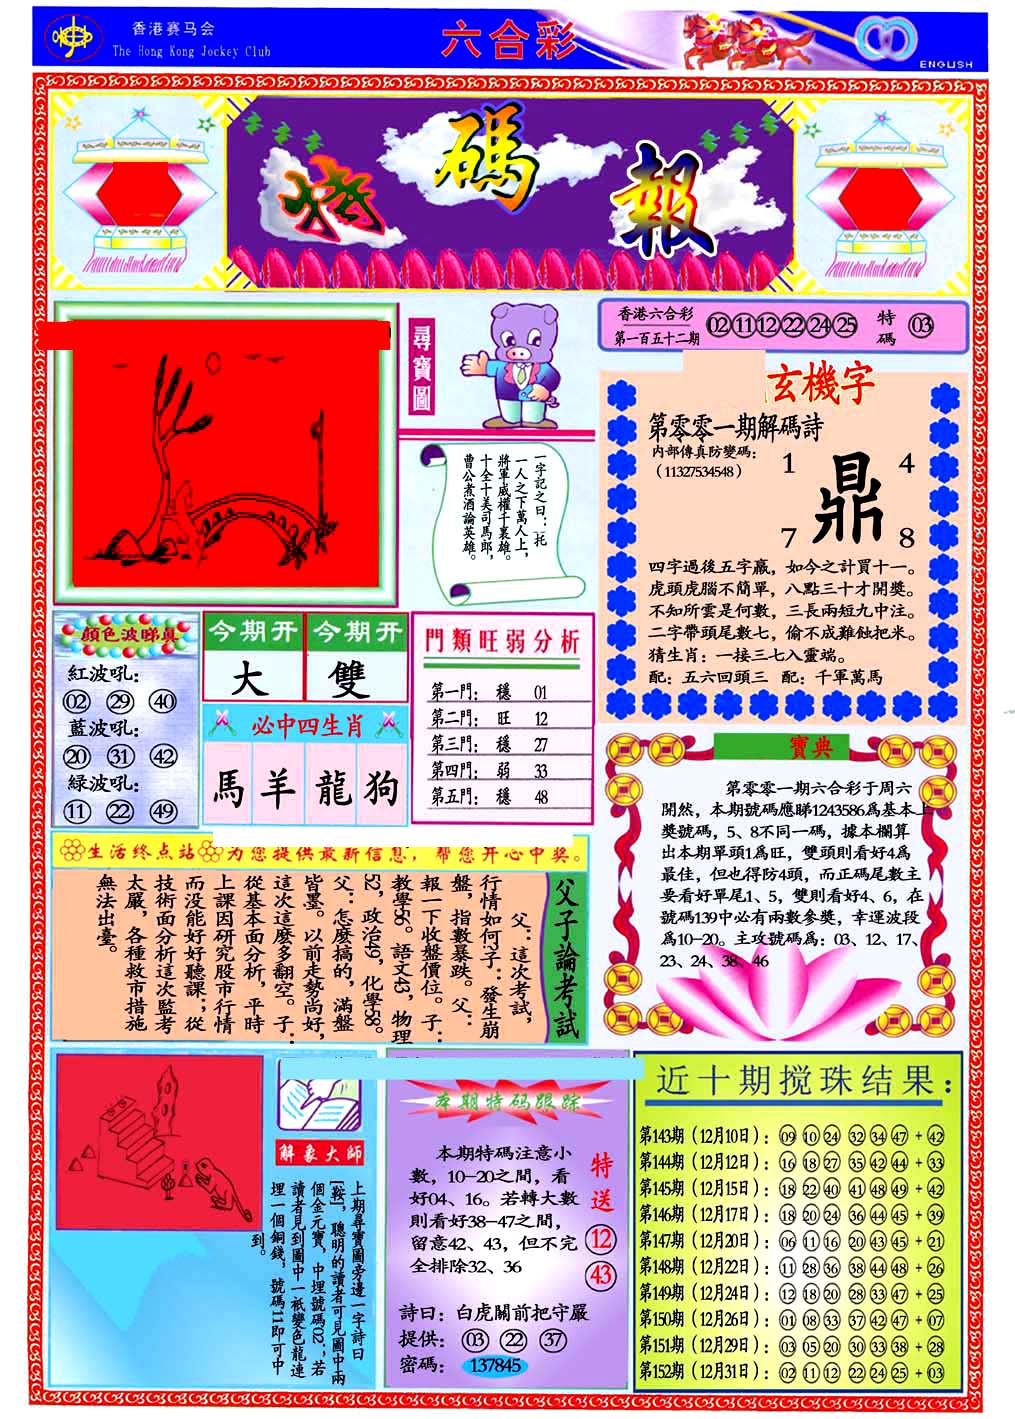 香港赛马会
The Hong Kong Jockey Club
六合彩
ENGLISH
特碼報
尋寶圖
一字記之曰：托
一人之下萬人上，
將軍威權千裏雄。
十全十美司馬郎，
曹公煮酒論英雄。
香港六合彩
第一百五十二期
02 11 12 22 24 25
特碼
03
玄機字
第零零一期解碼詩
内部傳真防變碼：
（11327534548）
1 4
鼎
7 8
四字過後五字贏，如今之計買十一。
虎頭虎腦不簡單，八點三十才開獎。
不知所雲是何數，三長兩短九中注。
二字帶頭尾數七，偷不成難蝕把米。
猜生肖：一接三七入靈端。
配：五六回頭三 配：千軍萬馬
顔色波睇真
紅波吼：
02 29 40
藍波吼：
20 31 42
緑波吼：
11 22 49
今期开 今期开
大 雙
必中四生肖
馬 羊 龍 狗
門類旺弱分析
第一門： 穩 01
第二門： 旺 12
第三門： 穩 27
第四門： 弱 33
第五門： 穩 48
寶典
第零零一期六合彩于周六
開然，本期號碼應睇1243586爲基本上
獎號碼，5、8不同一碼，據本欄算
出本期單頭1爲旺，雙頭則看好4爲
最佳，但也得防4頭，而正碼尾數主
要看好單尾1、5，雙則看好4、6，在
號碼139中必有兩數參獎，幸運波段
爲10-20。主攻號碼爲：03、12、17、
23、24、38、46
生活终点站 为您提供最新信息，帮您开心中奖。
父子論考試
父：這次考試，
行情如何子：發生崩
盤，指數暴跌。父：
報一下收盤價位。子：
教學56。語文43，物理
52，政治49，化學58。
父：怎麽搞的，滿盤
皆墨。以前走勢尚好，
這次這麽多翻空。子：
從基本面分析，平時
上課因研究股市行情
而没能好好聽課；從
技術面分析這次監考
太嚴，各種救市措施
無法出臺。
解象大師
上期尋寶圖旁邊一字詩曰
[鞍]，聰明的讀者可見圖中兩
個金元寶，中埋號碼02；若
讀者見到圖中一衹變色龍連
埋一個銅錢，號碼11即可中
到。
本期特码跟踪
本期特碼注意小
數，10-20之間，看
好04、16。若轉大數
則看好38-47之間，
留意42、43，但不完
全排除32、36
特送
12
43
詩曰：白虎關前把守嚴
提供： 03 22 37
密碼： 137845
近十期搅珠结果：
第143期（12月10日）：09 10 24 32 34 47 + 42
第144期（12月12日）：16 18 27 35 42 44 + 33
第145期（12月15日）：18 22 40 41 48 49 + 42
第146期（12月17日）：18 20 24 36 44 45 + 39
第147期（12月20日）：06 11 16 20 43 45 + 21
第148期（12月22日）：11 28 36 38 44 48 + 26
第149期（12月24日）：12 18 20 28 33 47 + 25
第150期（12月26日）：01 08 33 37 42 47 + 07
第151期（12月29日）：03 05 20 30 33 38 + 28
第152期（12月31日）：02 11 12 22 24 25 + 03